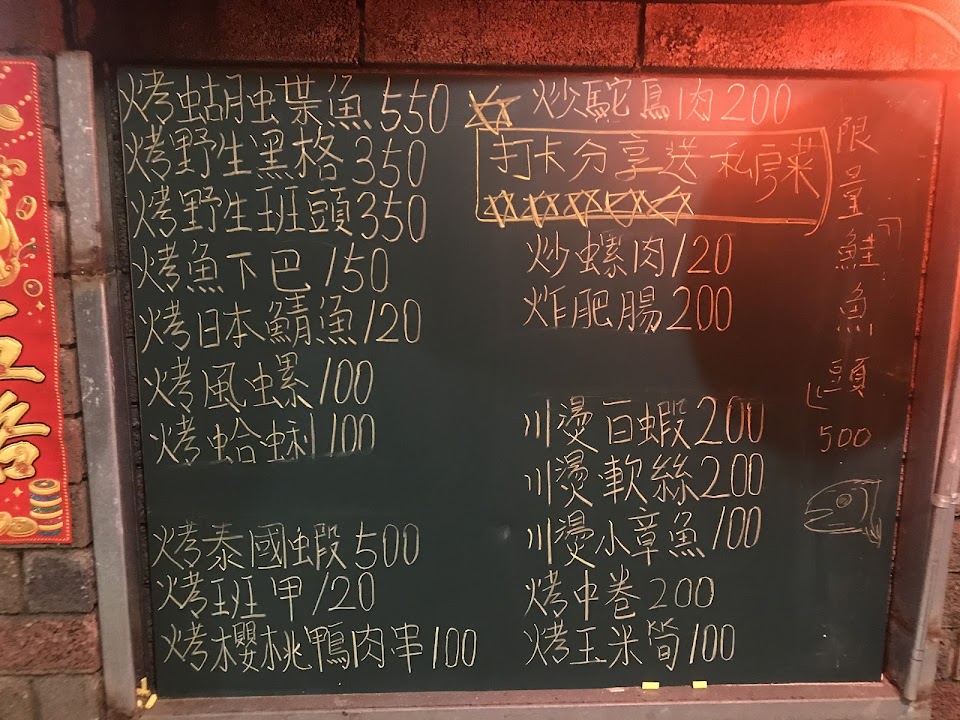 烤蛄月虫葉魚550
烤野生黑格350
烤野生班頭350
烤魚下巴150
烤日本鯖魚120
烤風虫螺100
烤蛤蜊100
烤泰國蝦500
烤班甲120
烤櫻桃鴨肉串100
☆炒駝鳥肉200
打卡分享送私房菜
☆☆☆☆☆
炒螺肉120
炸肥腸200
川燙白蝦200
川燙軟絲200
川燙小章魚100
烤中卷200
烤玉米筍100
限量「鮭魚頭」
500